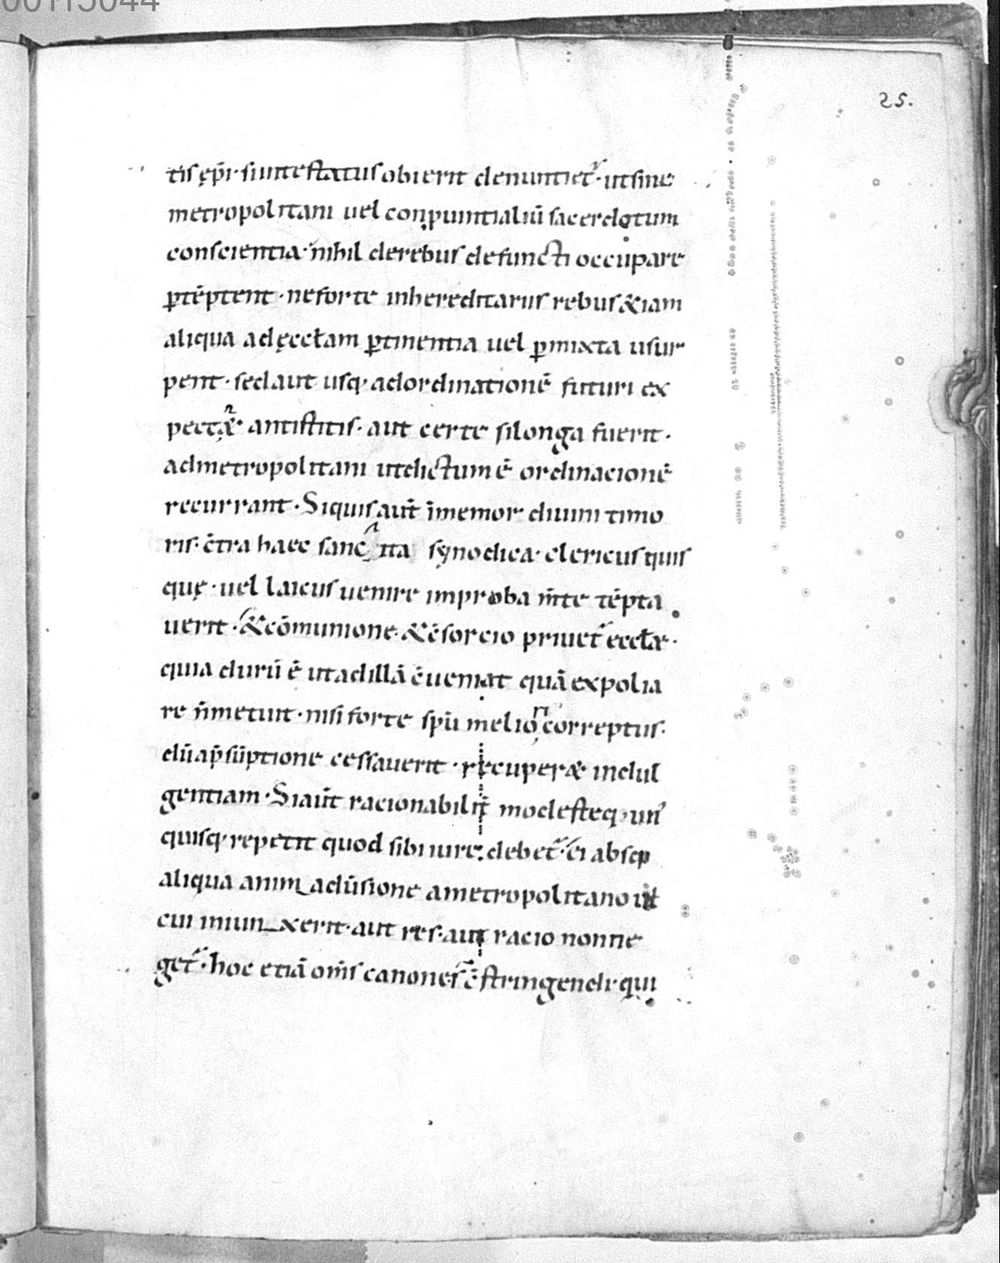 00115044
25.
tis ep̄i · siintestatus obierit denuntiet᷑ · utsine
metropolitani uel conpuintialiū sacerdotum
conscientia · nihil derebus defuncti occupare
ꝑtēptent · neforte inhereditariis rebus &iam
aliqua adęccłam ꝑtinentia uel ꝑmixta usur
pent · sedaut usq; adordinationē futuri ex
pectaę antistitis · aut certe silonga fuerit ·
admetropolitani utdictum ē ordinacionē
recurrant · Siquis aūt īmemor diuini timo
ris · c̄tra haec sanc ita synodica · clericus quis
quę · uel laicus uenire improba m̄te tēpta
uerit · &cōmunione · &c̄sorcio priuet᷑ eccłae ·
quia durū ē utadillā c̄ueniat quā expolia
re n̄metuit · nisi forte sp̄u meliori correptus ·
dūap̄sūptione cessauerit · recuperae indul
gentiam · Siaūt racionabilit̄ modesteq; un᷑
quisq; repetit quod sibi iure debet᷑ · ei absq;
aliqua anim adūsione ametropolitano ił
cui iniun xerit · aut res · aut racio nonne
get᷑ · hoc etiā om̄s canones c̄stringendi · qui